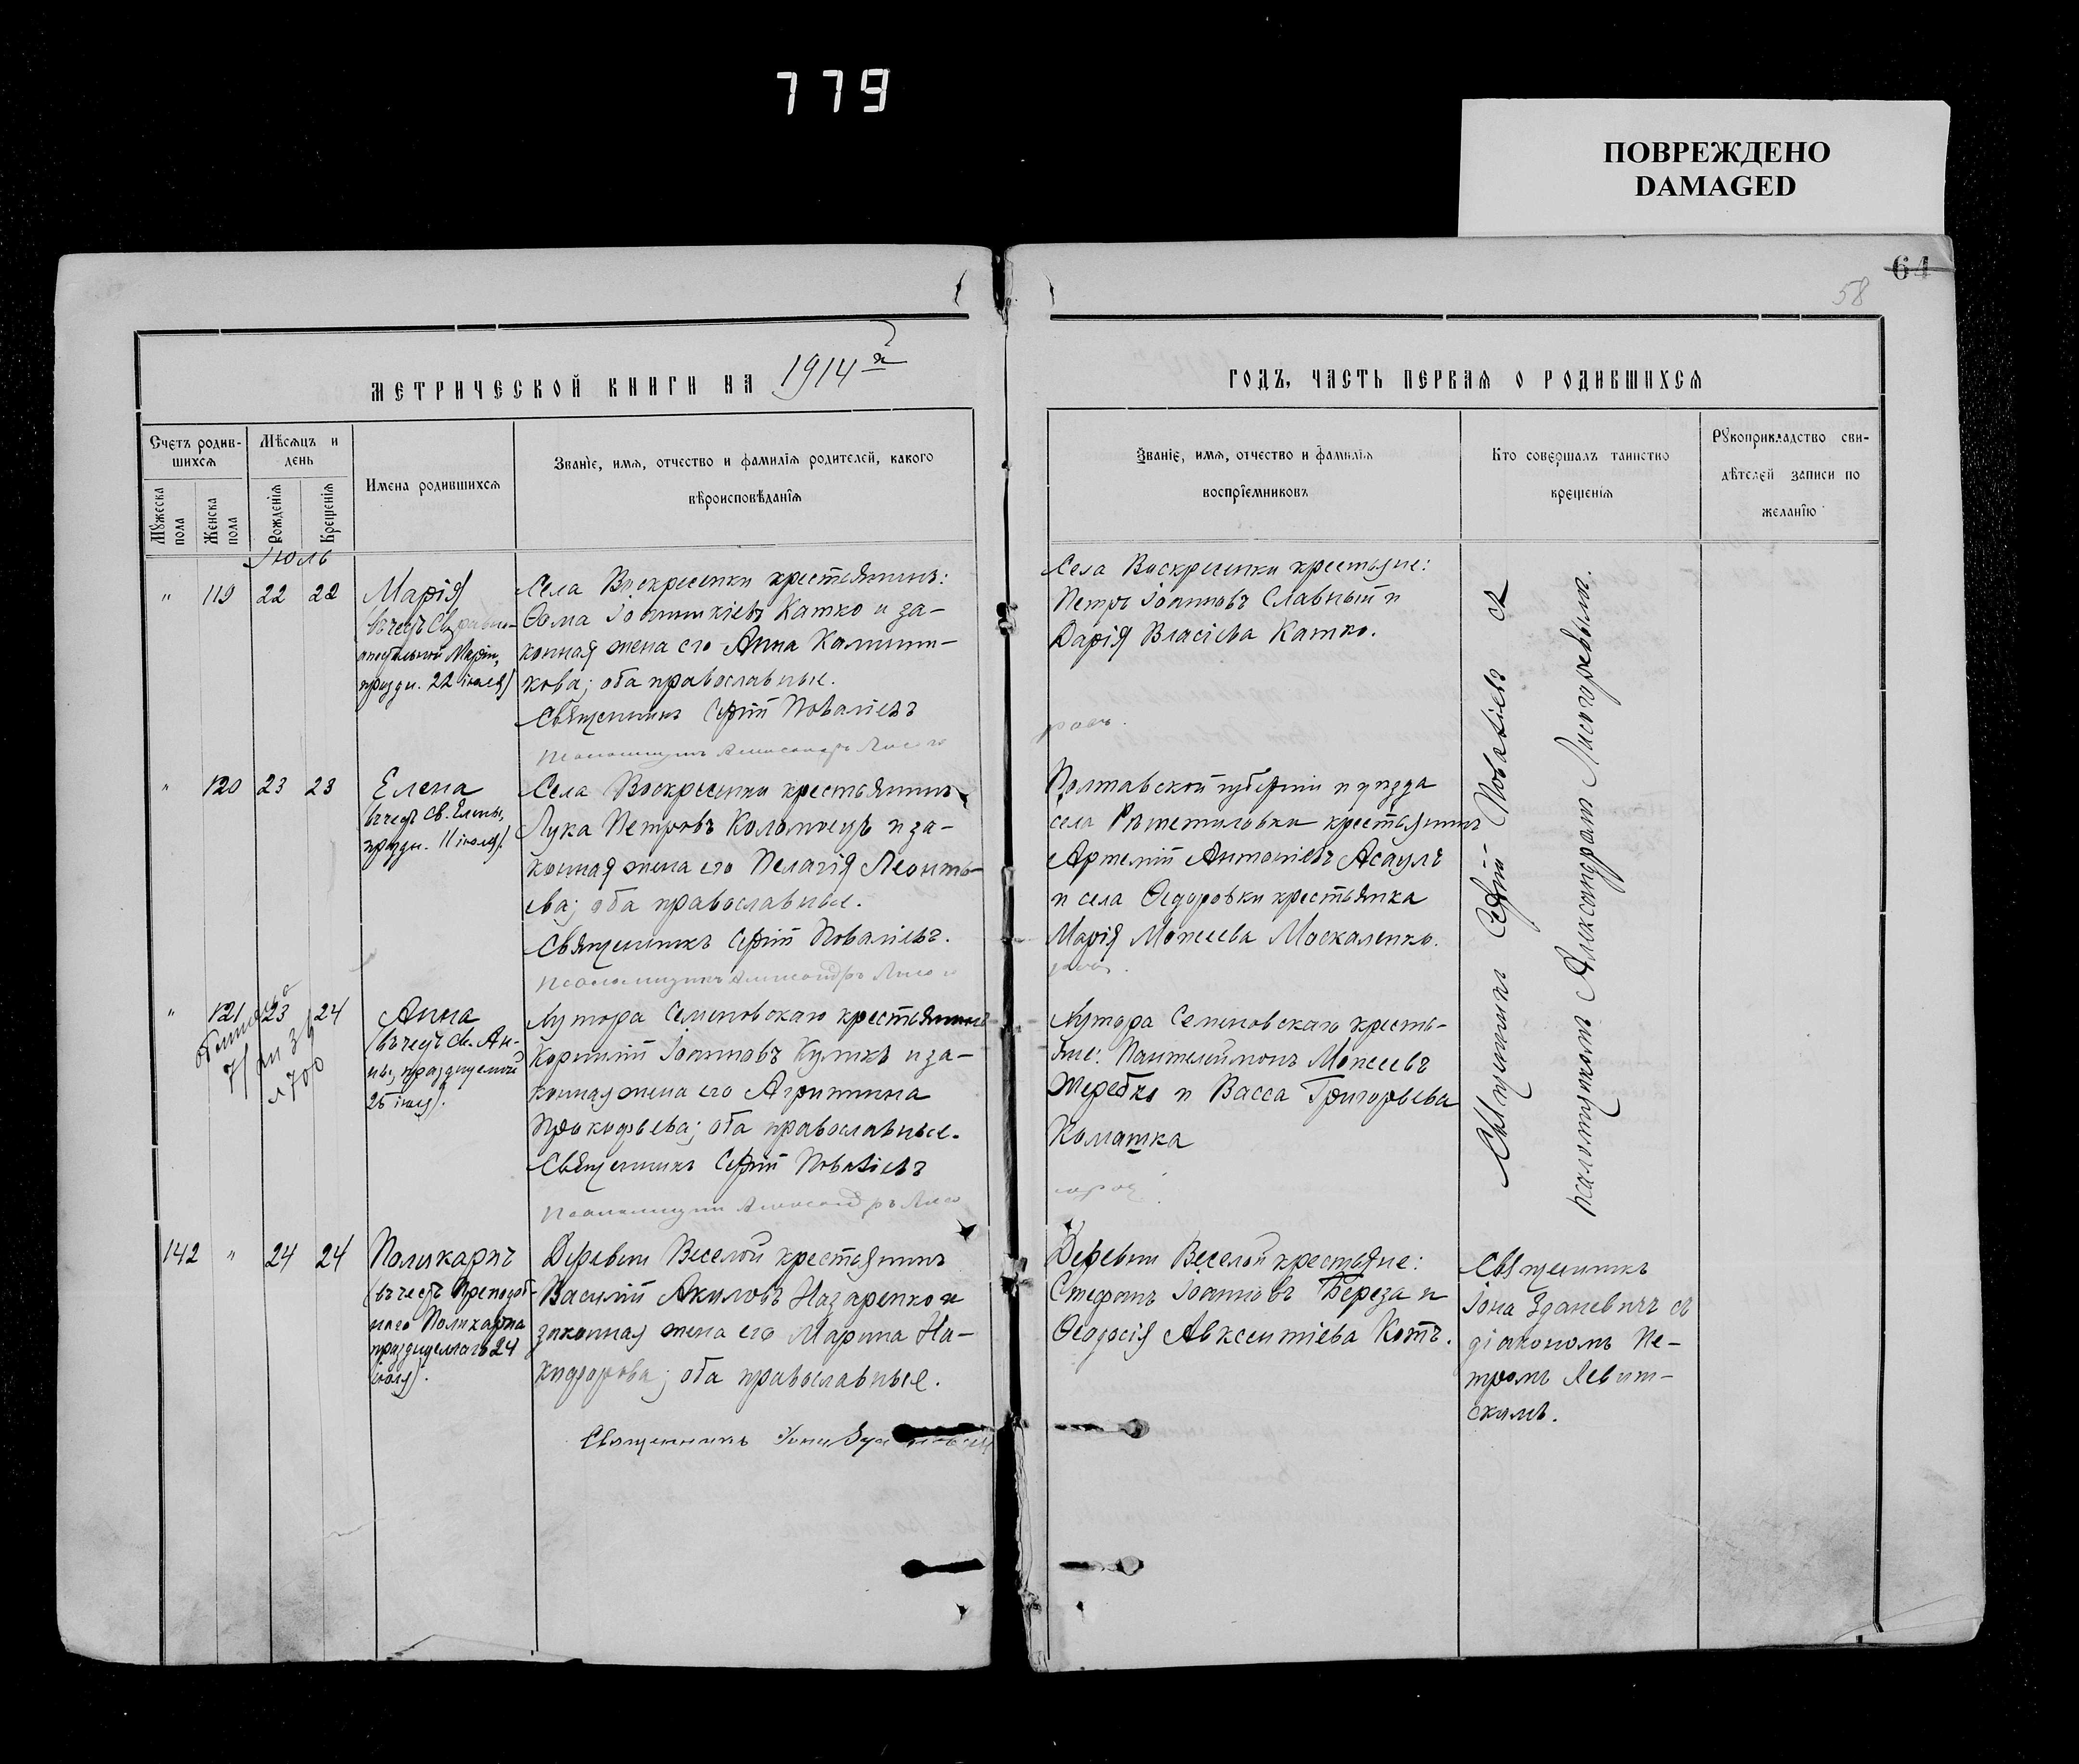 779
ПОВРЕЖДЕНО
DAMAGED
64
58
МЕТРИЧЕСКОЙ КНИГИ НА 1914 й
ГОДЪ, ЧАСТЬ ПЕРВАЯ О РОДИВШИХСЯ
Счетъ родив-
шихся
Мужеска
пола
Женска
пола
Мѣсяцъ и
день
Рожденія
Крещенія
Имена родившихся
Званіе, имя, отчество и фамилія родителей, какого
вѣроисповѣданія
Званіе, имя, отчество и фамилія
воспріемниковъ
Кто совершалъ таинство
крещенія
Рукоприкладство сви-
дѣтелей записи по
желанію
Іюль
" 119 22 22
Марія
(въ честь Св. равно-
апостольной Маріи,
праздн. 22 іюля)
Села Воскресенки крестьянинъ:
Ѳома Іоанникіевъ Катко и за-
конная жена его Анна Калини-
кова; оба православные.
Священникъ Сергій Поваліевъ
Псаломщикъ Александръ Лисого
Села Воскресенки крестьяне:
Петръ Іоанновъ Славный и
Дарія Власіева Катко.
" 120 23 23
Елена
(въ честь св. Елены,
праздн. 11 іюля).
Села Воскресенки крестьянинъ
Лука Петровъ Коломоецъ и за-
конная жена его Пелагія Леонть-
ева; оба православные.
Священникъ Сергій Поваліевъ.
Псаломщикъ Александръ Лисого
Полтавской губерніи и уѣзда
села Рѣшетиловки крестьянинъ
Артемій Антоніевъ Асаулъ
и села Ѳедоровки крестьянка
Марія Моисеева Москаленко.
" 121 23 24
Анна
(въ честь св. Ан-
ны, празднуемой
25 іюля).
Хутора Семеновскаго крестьянинъ
Корнилій Іоанновъ Куликъ и за-
конная жена его Агриппина
Прокофьева; оба православные.
Священникъ Сергій Поваліевъ
Псаломщикъ Александръ Лисо
Хутора Семеновскаго кресть-
яне: Пантелеймонъ Моисеевъ
Жеребко и Васса Григорьева
Священникъ Сергій Поваліевъ съ
псаломщикомъ Александромъ Лисогоревымъ.
142 " 24 24
Поликарпъ
(въ честь Преподоб-
наго Поликарпа
празднуемаго 24
іюля).
Деревни Веселой крестьянинъ
Василій Акиловъ Назаренко и
законная жена его Марина Ни-
кифорова; оба православные.
Священникъ Іона
Деревни Веселой крестьяне:
Стефанъ Іоанновъ Береза и
Ѳеодосія Авксентіева Котъ.
Священникъ
Іона Зданевичъ съ
діакономъ Пе-
тромъ Левит-
скимъ.